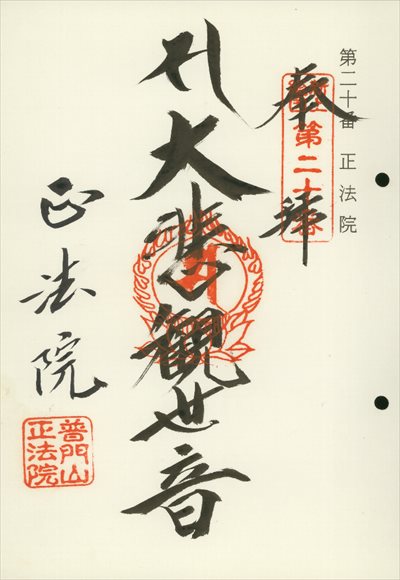 第二十番 正法院
奉拝
第二十番
大悲觀世音
正法院
普門山
正法院